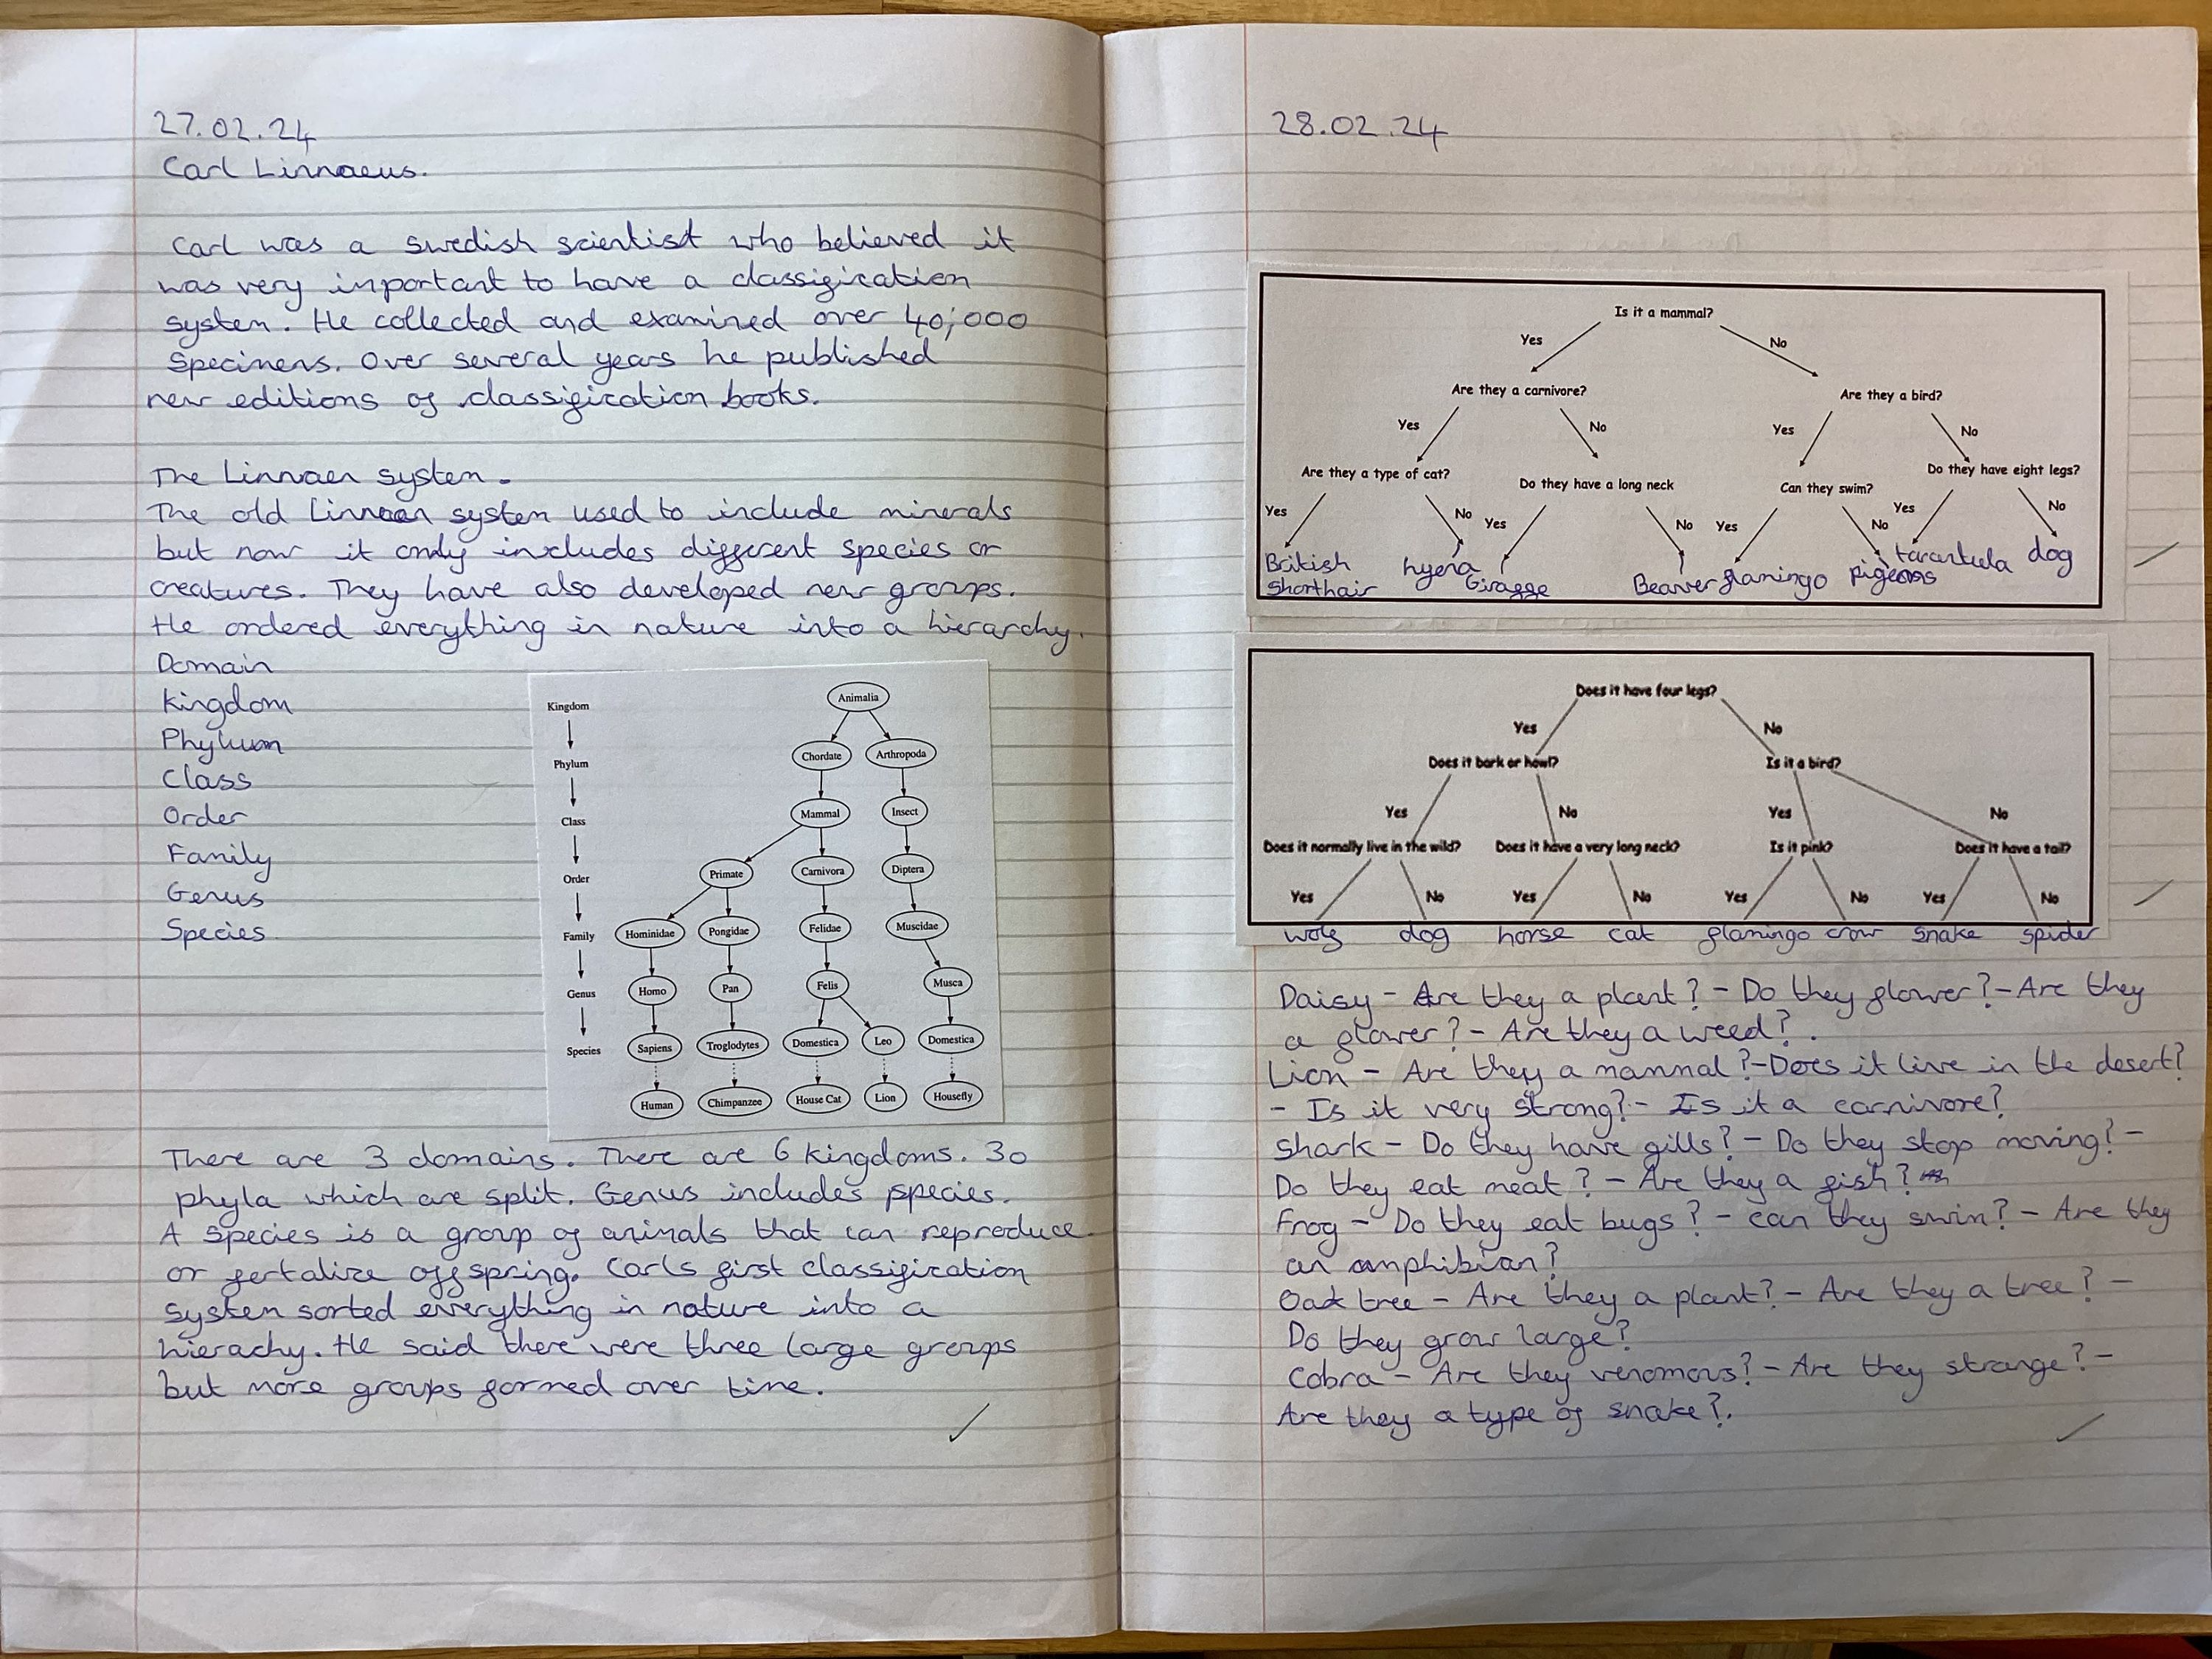 27.02.24
Carl Linnaeus.
Carl was a swedish scientist who believed it
was very important to have a classification
system. He collected and examined over 40,000
specimens. Over several years he published
new editions of classification books.
The Linnaen system.
The old Linnaen system used to include minerals
but now it only includes different species or
creatures. They have also developed new groups.
He ordered everything in nature into a hierarchy.
Domain
Kingdom
Phylum
Class
Order
Family
Genus
Species
Kingdom
Animalia
Phylum
Chordate
Arthropoda
Class
Mammal
Insect
Order
Primate
Carnivora
Diptera
Family
Hominidae
Pongidae
Felidae
Muscidae
Genus
Homo
Pan
Felis
Musca
Species
Sapiens
Troglodytes
Domestica
Leo
Domestica
Human
Chimpanzee
House Cat
Lion
Housefly
There are 3 domains. There are 6 kingdoms. 30
phyla which are split. Genus includes species.
A species is a group of animals that can reproduce
or fertalize offspring. Carls first classification
system sorted everything in nature into a
hierachy. He said there were three large groups
but more groups formed over time.
28.02.24
Is it a mammal?
Yes
No
Are they a carnivore?
Are they a bird?
Yes
No
Yes
No
Are they a type of cat?
Do they have a long neck
Can they swim?
Do they have eight legs?
Yes
No
Yes
No
Yes
No
Yes
No
British
Shorthair
hyena
Giraffe
Beaver
flamingo
pigeons
tarantula
dog
Does it have four legs?
Yes
No
Does it bark or howl?
Is it a bird?
Yes
No
Yes
No
Does it normally live in the wild?
Does it have a very long neck?
Is it pink?
Does it have a tail?
Yes
No
Yes
No
Yes
No
Yes
No
wolf dog horse cat flamingo crow snake spider
Daisy - Are they a plant? - Do they flower? - Are they
a flower? - Are they a weed?.
Lion - Are they a mammal? - Does it live in the desert?
- Is it very strong? - Is it a carnivore?
Shark - Do they have gills? - Do they stop moving? -
Do they eat meat? - Are they a fish?
Frog - Do they eat bugs? - can they swim? - Are they
an amphibian?
Oak tree - Are they a plant? - Are they a tree? -
Do they grow large?
Cobra - Are they venomous? - Are they strange? -
Are they a type of snake?.